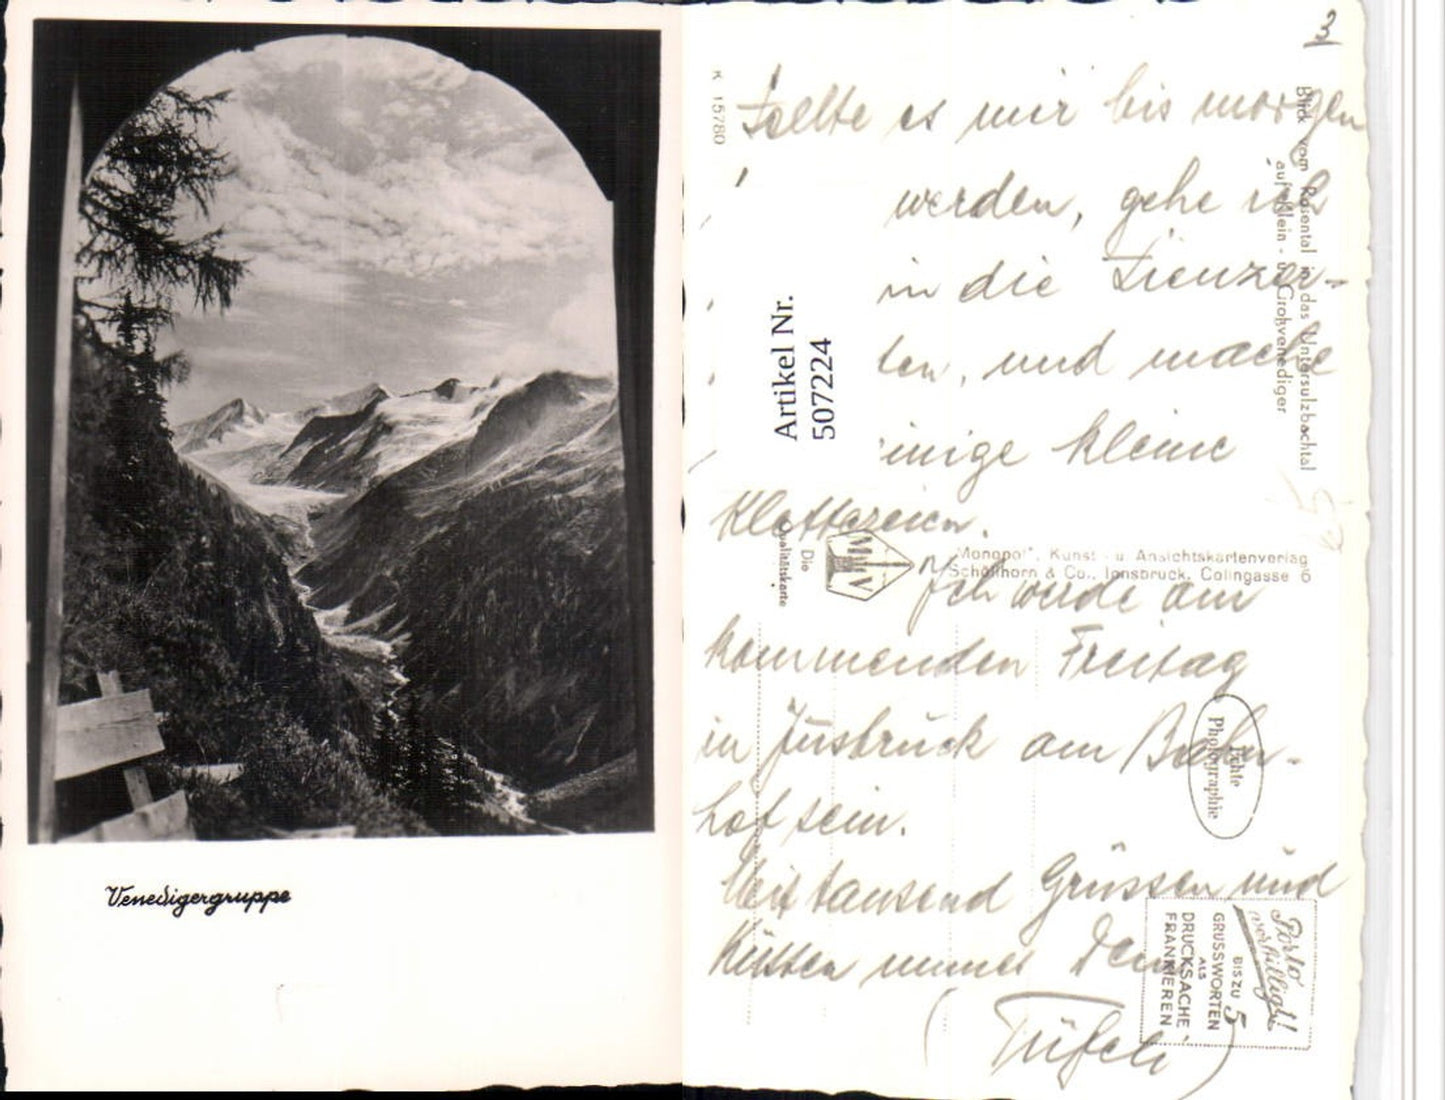 Venedigergruppe
3
K 15780
Sollte es mir bis morgen
werden, gehe ich
in die Lienzer-
ten, und mache
einige kleine
Klettereien.
Ich werde am
kommenden Freitag
in Insbruck am Bahn-
hof sein.
Mit tausend Grüssen und
Küssen immer Dein
Artikel Nr.
507224
Blick vom Rosental in das Untersulzbachtal
auf Klein - u. Großvenediger
Die
Qualitätskarte
"Monopol", Kunst- u. Ansichtskartenverlag
Schöllhorn & Co., Innsbruck, Colingasse 6
Echte
Photographie
Porto
verbilligt!
BIS ZU 5
GRUSSWORTEN
ALS
DRUCKSACHE
FRANKIEREN